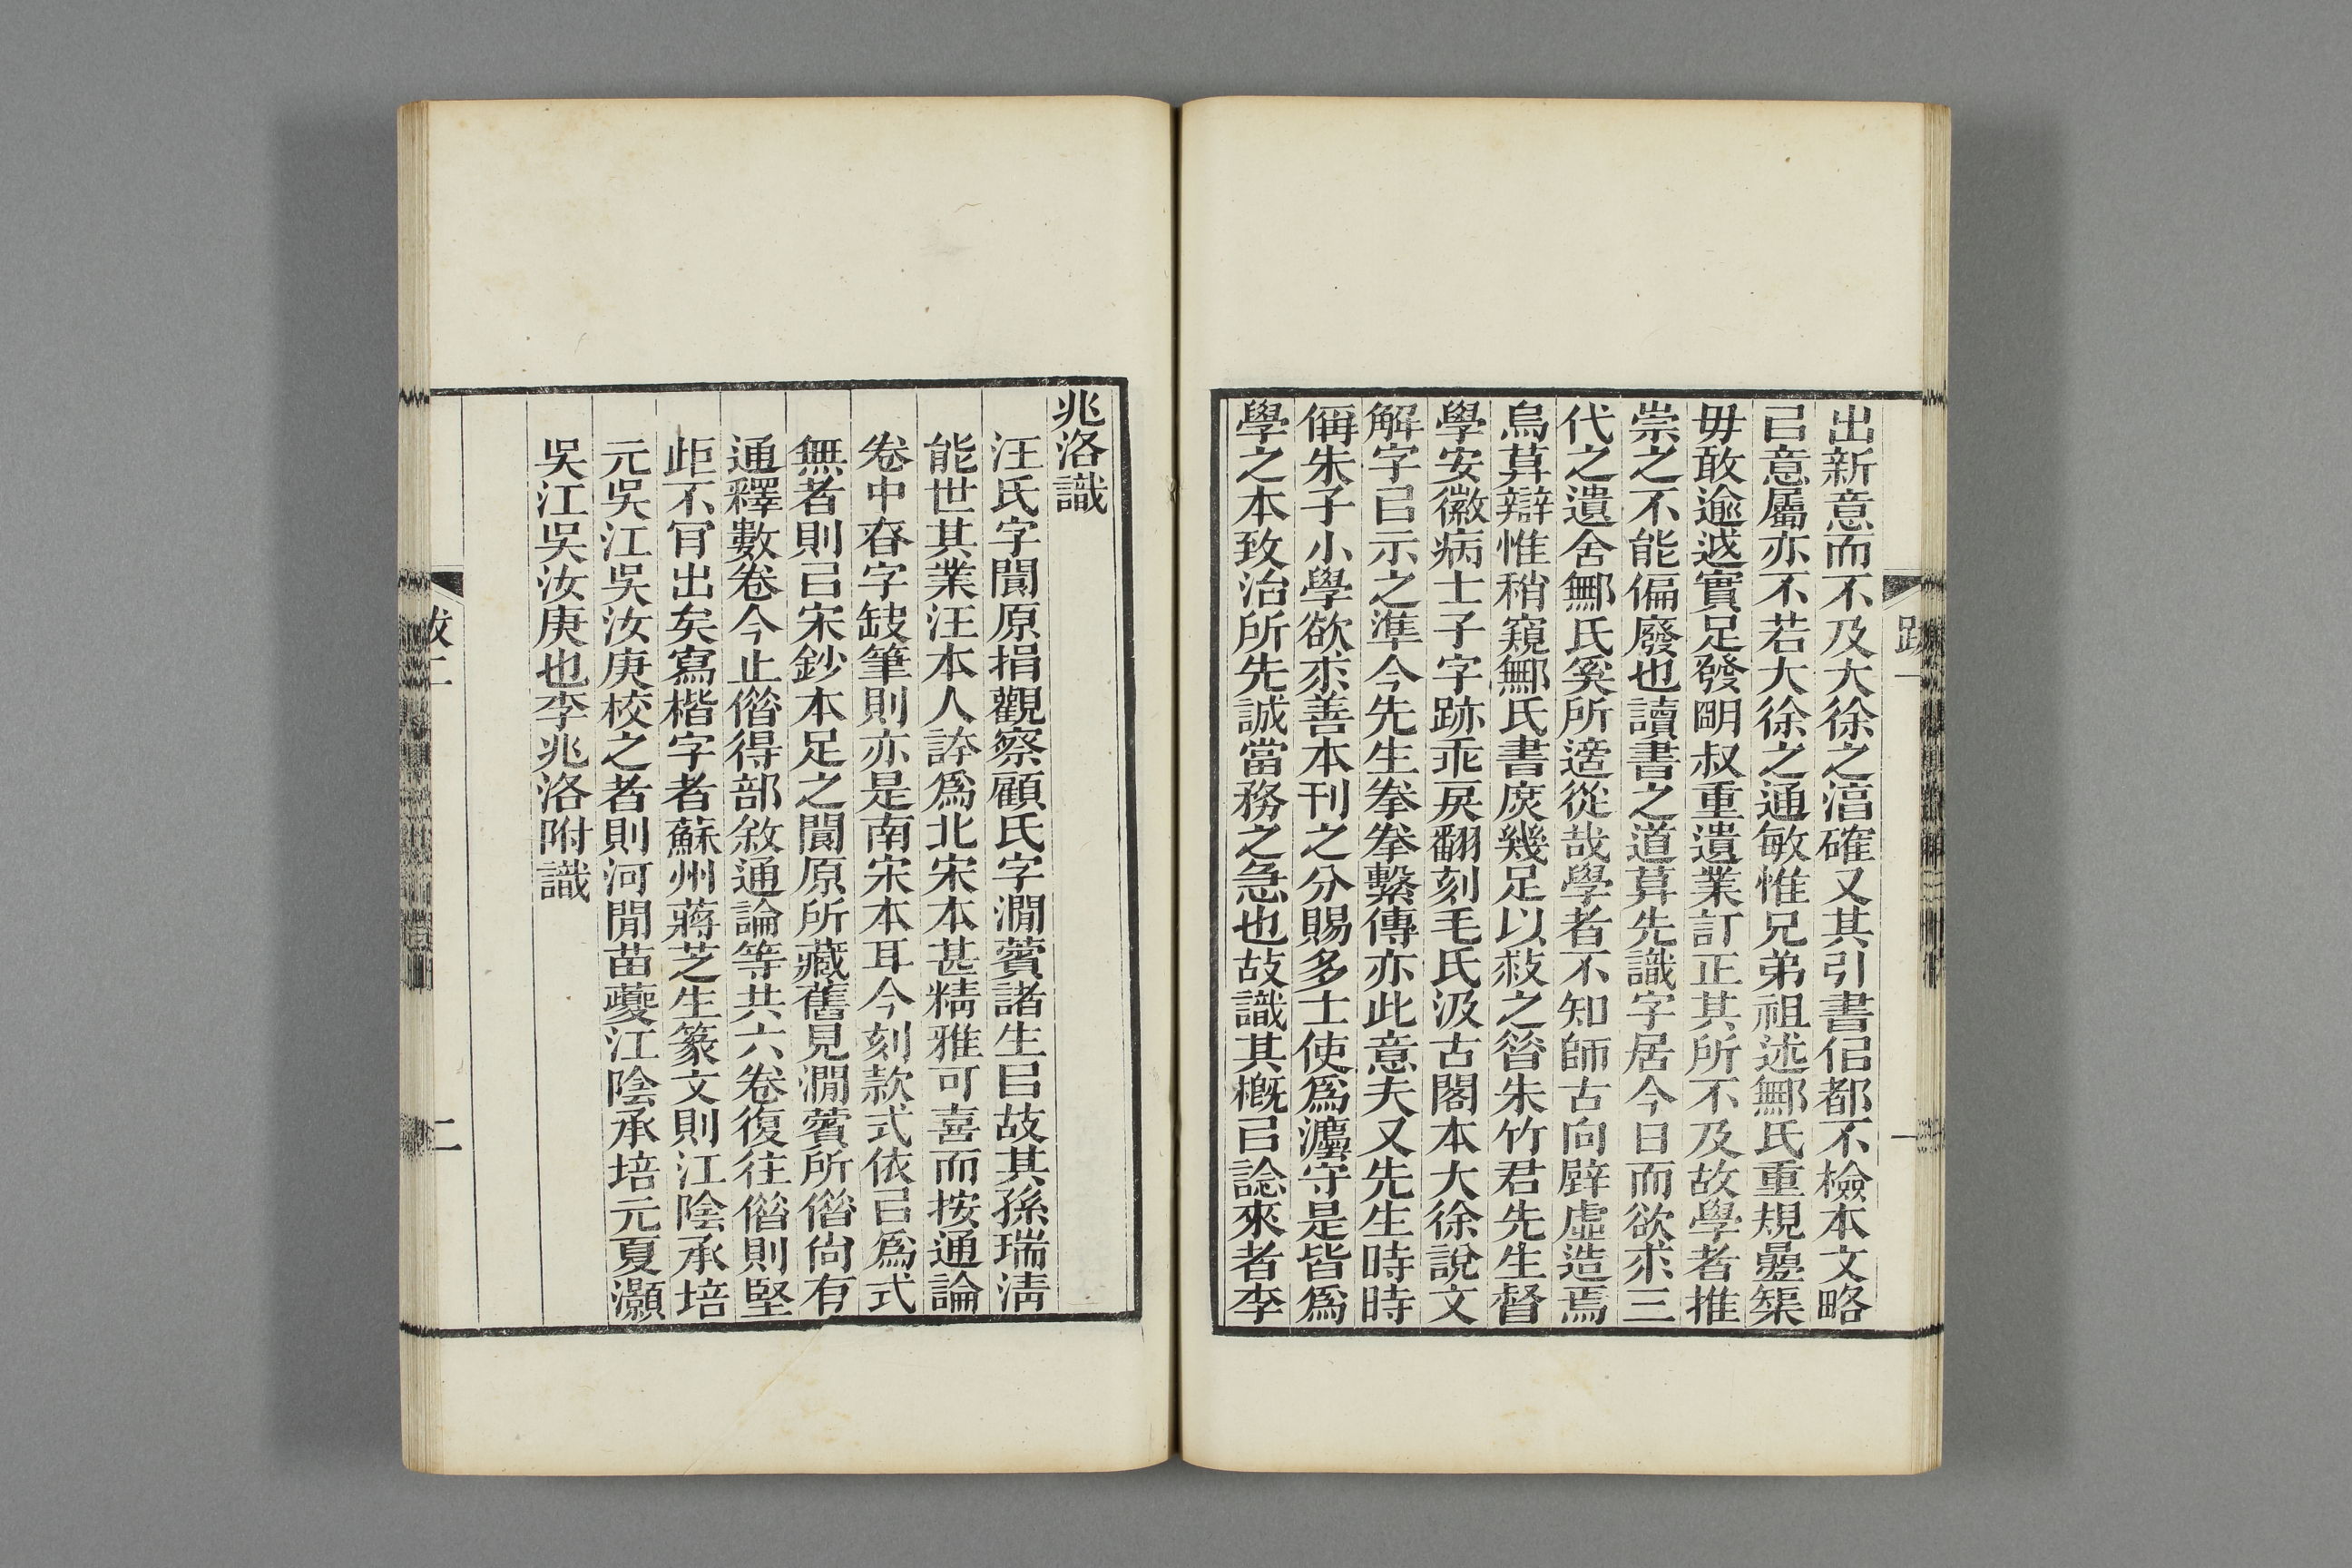 出新意而不及大徐之湻確又其引書佀都不檢本文略
㠯意屬亦不若大徐之通敏惟兄弟祖述鄦氏重規曡榘
毋敢逾越實足發朙叔重遺業訂正其所不及故學者推
崇之不能偏廢也讀書之道莫先識字居今日而欲求三
代之遺舍鄦氏奚所適從哉學者不知師古向壁虛造焉
烏莫辯惟稍窺鄦氏書庶幾足以救之昝朱竹君先生督
學安徽病士子字跡乖戾翻刻毛氏汲古閣本大徐說文
解字㠯示之準今先生拳拳繫傳亦此意夫又先生時時
偁朱子小學欲求善本刊之分賜多士使爲灋守是皆爲
學之本致治所先誠當務之急也故識其槪㠯諗來者李
跋
一
兆洛識
汪氏字閬原捐觀察顧氏字澗薲諸生㠯故其孫瑞淸
能世其業汪本人誇爲北宋本甚精雅可喜而按通論
卷中昚字缺筆則亦是南宋本耳今刻款式依㠯爲式
無者則㠯宋鈔本足之閬原所藏舊見澗薲所偺尙有
通釋數卷今止偺得部敘通論等共六卷復往偺則堅
歫不肎出矣寫楷字者蘇州蔣芝生篆文則江陰承培
元吳江吳汝庚校之者則河閒苗夔江陰承培元夏灝
吳江吳汝庚也李兆洛附識
跋二
二